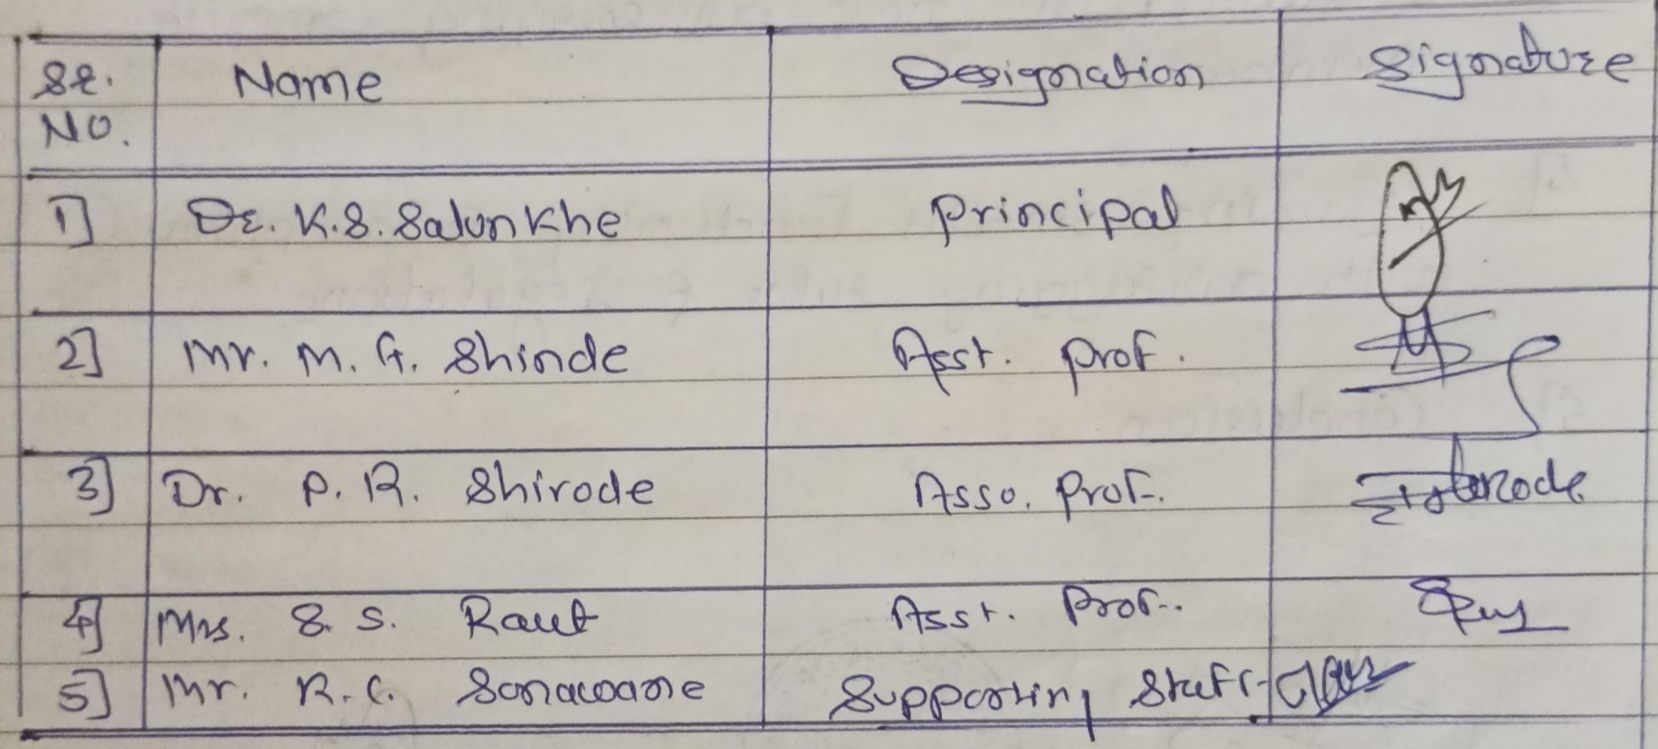 Sr. No. Name Designation Signature
1] Dr. K.S. Salunkhe Principal
2] Mr. M. G. Shinde Asst. Prof.
3] Dr. P. R. Shirode Asso. Prof.
4] Mrs. S. S. Raut Asst. Prof.
5] Mr. R. C. Sonawane Supporting Staff